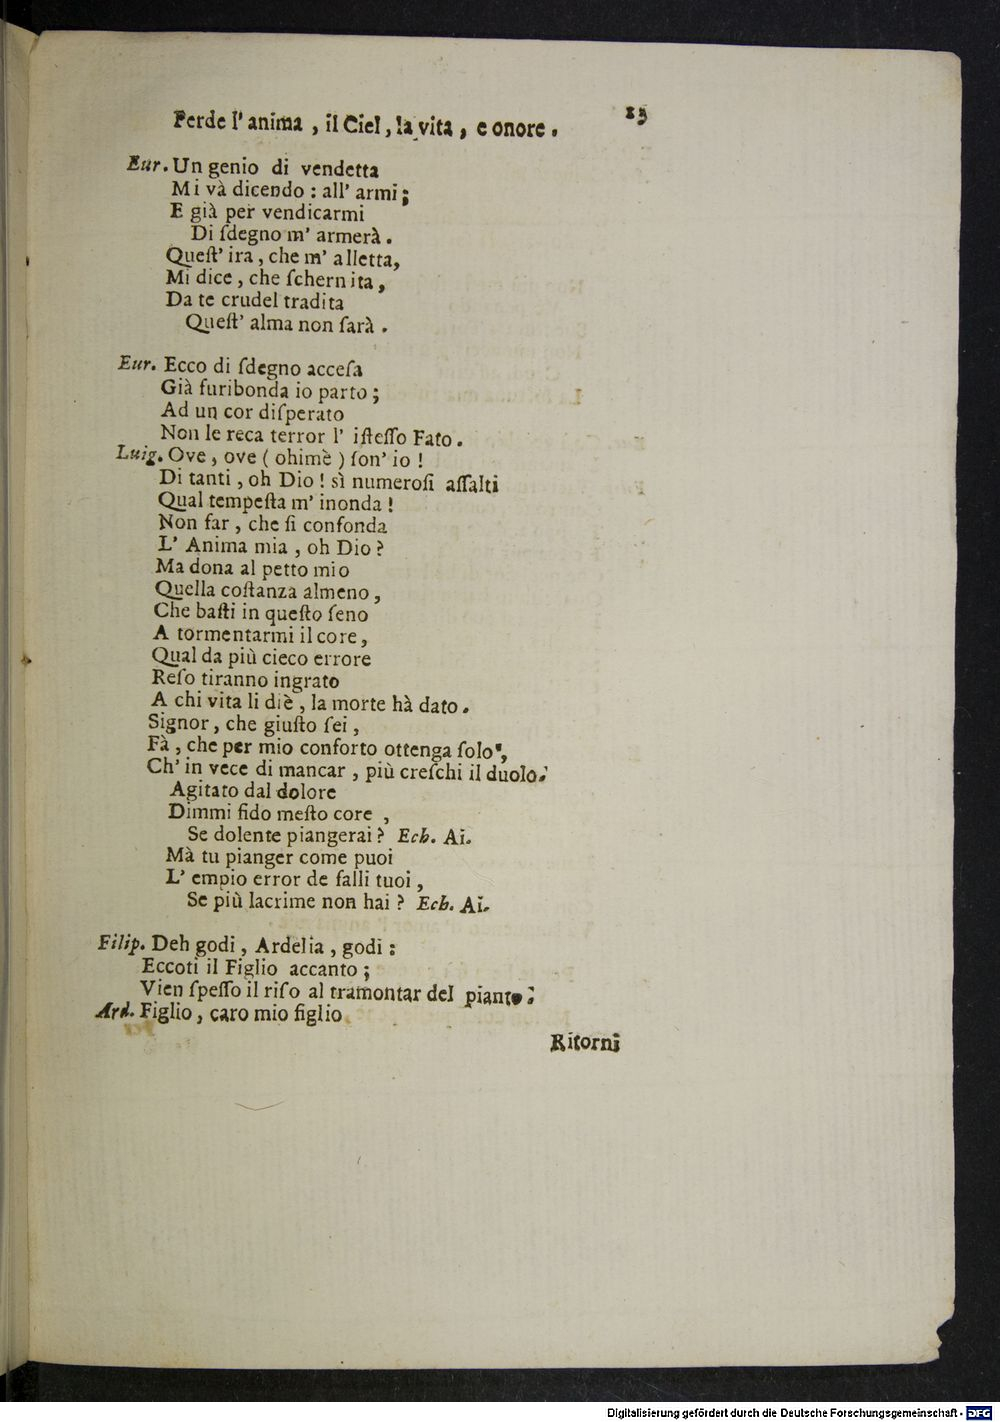 13
Perde l' anima , il Ciel , la vita , e onore .
Eur. Un genio di vendetta
Mi và dicendo : all' armi ;
E già per vendicarmi
Di ſdegno m' armerà .
Queſt' ira , che m' alletta,
Mi dice , che ſchernita ,
Da te crudel tradita
Queſt' alma non ſarà .
Eur. Ecco di ſdegno acceſa
Già furibonda io parto ;
Ad un cor diſperato
Non le reca terror l' iſteſſo Fato .
Luig. Ove , ove ( ohimè ) ſon' io !
Di tanti , oh Dio ! sì numeroſi aſſalti
Qual tempeſta m' inonda !
Non far , che ſi confonda
L' Anima mia , oh Dio ?
Ma dona al petto mio
Quella coſtanza almeno ,
Che baſti in queſto ſeno
A tormentarmi il core ,
Qual da più cieco errore
Reſo tiranno ingrato
A chi vita li diè , la morte hà dato .
Signor , che giuſto ſei ,
Fà , che per mio conforto ottenga ſolo ,
Ch' in vece di mancar , più creſchi il duolo .
Agitato dal dolore
Dimmi fido meſto core ,
Se dolente piangerai ? Ech. Ai.
Mà tu pianger come puoi
L' empio error de falli tuoi ,
Se più lacrime non hai ? Ech. Ai.
Filip. Deh godi , Ardelia , godi :
Eccoti il Figlio accanto ;
Vien ſpeſſo il riſo al tramontar del pianto .
Ard. Figlio , caro mio figlio
Ritorni
Digitalisierung gefördert durch die Deutsche Forschungsgemeinschaft - DFG